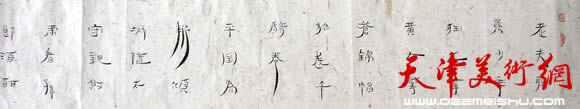 老夫聊
發少年
狂左
黃右擎
蒼錦帽
貂裘千
騎卷
平岡為
報傾
城隨太
守親射
虎看孫
郎酒酣
天津美術網
www.022meishu.com